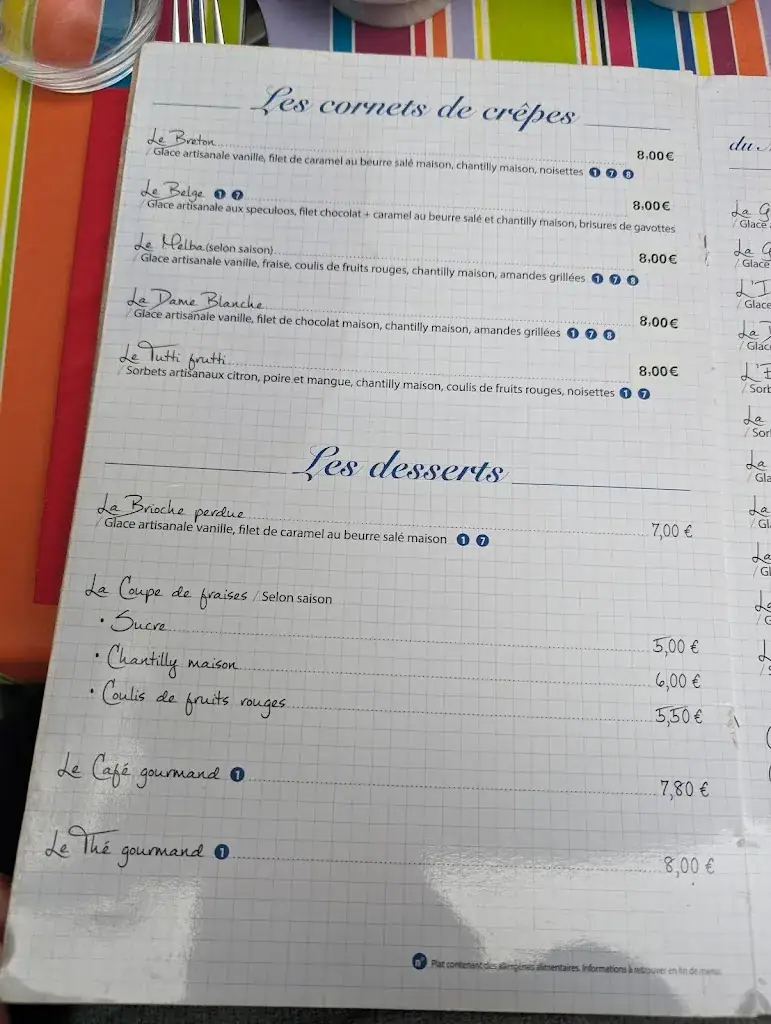 Les cornets de crêpes
Le Breton 8,00€
/ Glace artisanale vanille, filet de caramel au beurre salé maison, chantilly maison, noisettes 1 7 8
Le Belge 1 7 8,00€
/ Glace artisanale aux speculoos, filet chocolat + caramel au beurre salé et chantilly maison, brisures de gavottes
Le Melba (selon saison) 8,00€
/ Glace artisanale vanille, fraise, coulis de fruits rouges, chantilly maison, amandes grillées 1 7 8
La Dame Blanche 8,00€
/ Glace artisanale vanille, filet de chocolat maison, chantilly maison, amandes grillées 1 7 8
Le Tutti frutti 8,00€
/ Sorbets artisanaux citron, poire et mangue, chantilly maison, coulis de fruits rouges, noisettes 1 7
Les desserts
La Brioche perdue 7,00 €
/ Glace artisanale vanille, filet de caramel au beurre salé maison 1 7
La Coupe de fraises / Selon saison
• Sucre 5,00 €
• Chantilly maison 6,00 €
• Coulis de fruits rouges 5,50 €
Le Café gourmand 1 7,80 €
Le Thé gourmand 1 8,00 €
n° Plat contenant des allergènes alimentaires. Informations à retrouver en fin de menu.
du
La G
/ Glace
La G
/ Glace
L'I
/ Glace
La
/ Glac
L'E
/ Sorb
La
/ Sor
La
/ Gla
La
/ Gl
La
/ Gl